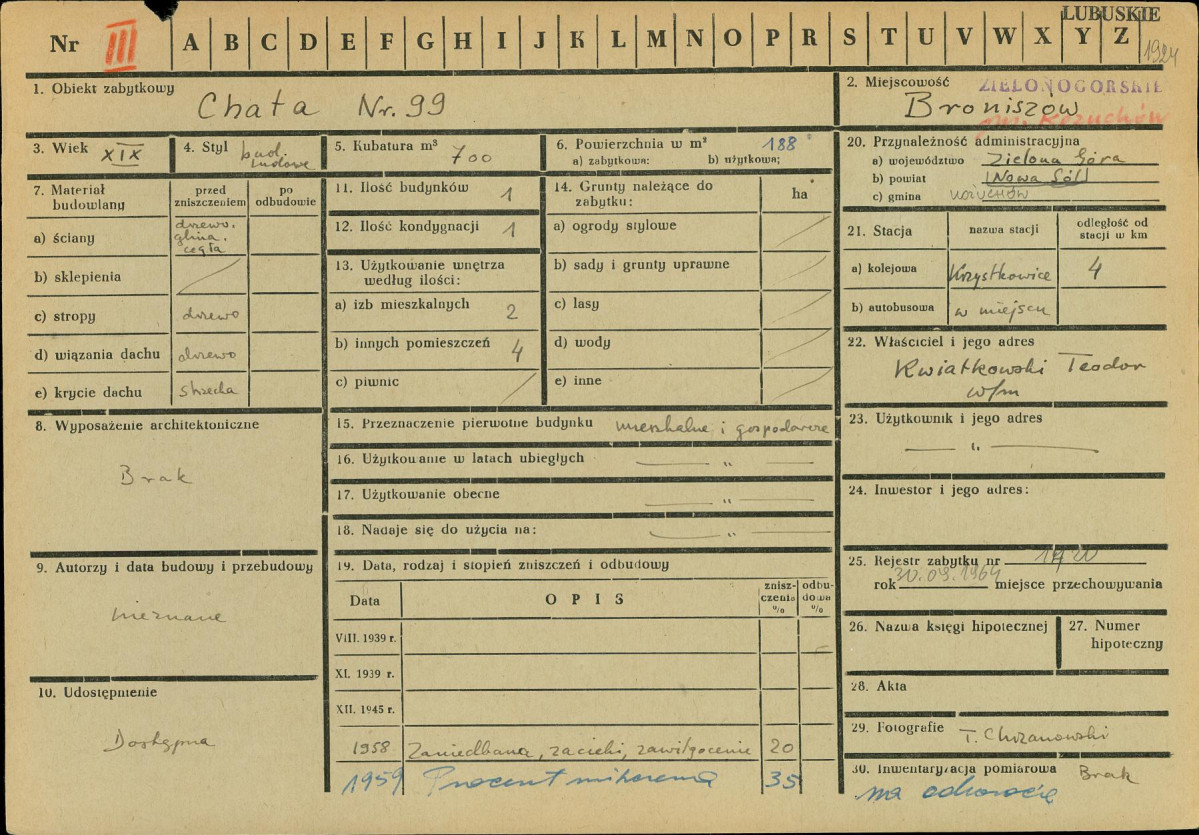 LUBUSKIE
Nr III A B C D E F G H I J K L M N O P R S T U V W X Y Z
1924
1. Obiekt zabytkowy
Chata Nr. 99
2. Miejscowość ZIELONOGÓRSKIE
Broniszów
gm. Kożuchów
3. Wiek XIX
4. Styl bud. ludowe
5. Kubatura m³ 700
6. Powierzchnia w m² 188
a) zabytkowa: b) użytkowa;
7. Materiał budowlany
przed zniszczeniem
po odbudowie
a) ściany drzewo. glina. cegła
b) sklepienia
c) stropy drzewo
d) wiązania dachu drzewo
e) krycie dachu strzecha
8. Wyposażenie architektoniczne
Brak
9. Autorzy i data budowy i przebudowy
nieznane
10. Udostępnienie
Dostępna
11. Ilość budynków 1
12. Ilość kondygnacji 1
13. Użytkowanie wnętrza według ilości:
a) izb mieszkalnych 2
b) innych pomieszczeń 4
c) piwnic
14. Grunty należące do zabytku: ha
a) ogrody stylowe
b) sady i grunty uprawne
c) lasy
d) wody
e) inne
15. Przeznaczenie pierwotne budynku mieszkalne i gospodarcze
16. Użytkowanie w latach ubiegłych — „ —
17. Użytkowanie obecne — „ —
18. Nadaje się do użycia na: — „ —
19. Data, rodzaj i stopień zniszczeń i odbudowy
Data OPIS zniszczenia % odbudowa %
VIII. 1939 r.
XI. 1939 r.
XII. 1945 r.
1958 Zaniedbana, zacieki, zawilgocenie 20
1959 Procent niszczenia 35
20. Przynależność administracyjna
a) województwo Zielona Góra
b) powiat Nowa Sól
c) gmina KOŻUCHÓW
21. Stacja nazwa stacji odległość od stacji w km
a) kolejowa Krzystkowice 4
b) autobusowa w miejscu
22. Właściciel i jego adres
Kwiatkowski Teodor
w/m
23. Użytkownik i jego adres
— „ —
24. Inwestor i jego adres:
25. Rejestr zabytku nr
rok 30.09.1964 miejsce przechowywania
26. Nazwa księgi hipotecznej
27. Numer hipoteczny
28. Akta
29. Fotografie T. Chrzanowski
30. Inwentaryzacja pomiarowa Brak
na odwrocie